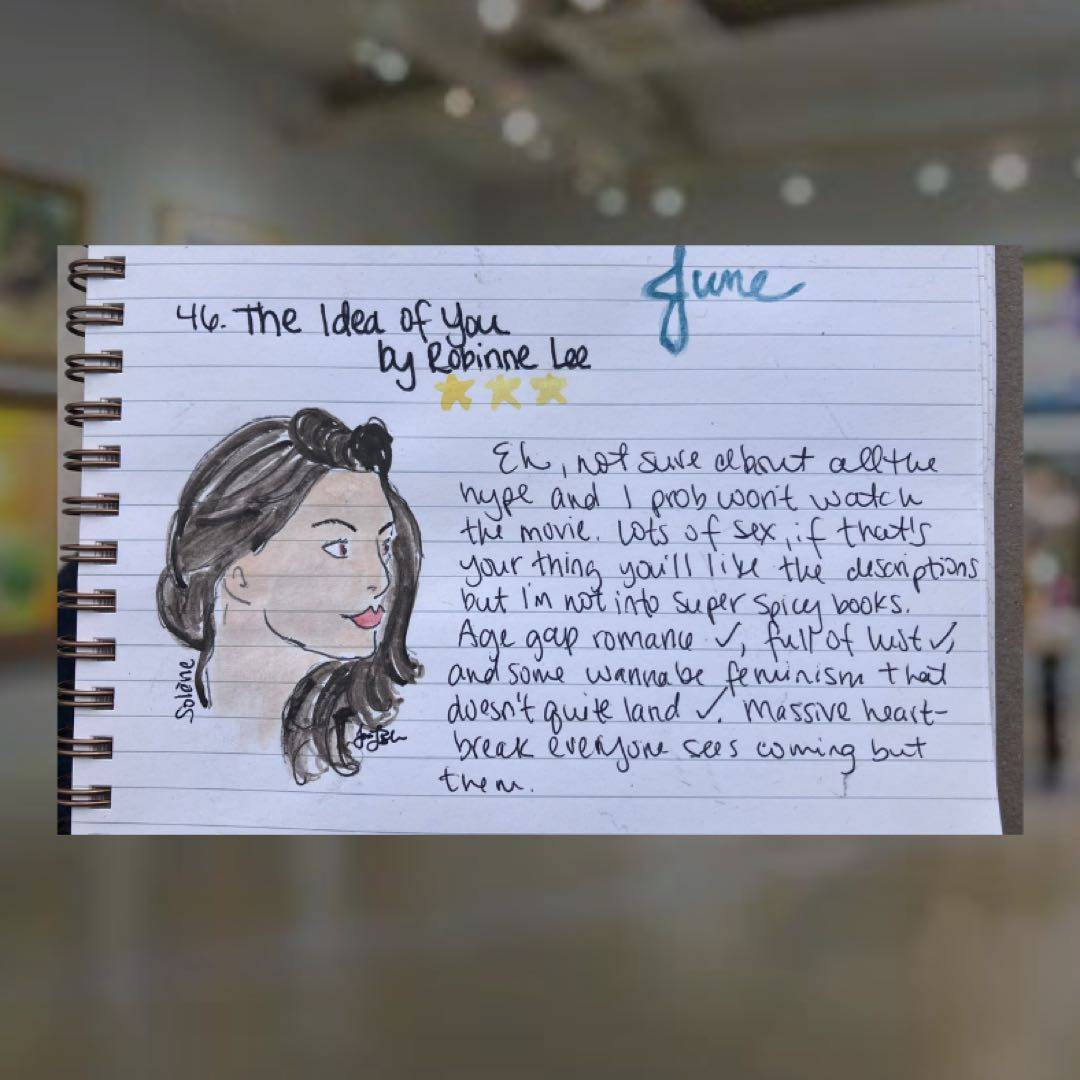 June
46. The Idea of You
by Robinne Lee
Eh, not sure about all the
hype and I prob won't watch
the movie. Lots of sex, if that's
your thing you'll like the descriptions
but I'm not into super spicy books.
Age gap romance ✓, full of lust ✓,
and some wannabe feminism that
doesn't quite land ✓. Massive heart-
break everyone sees coming but
them.
Solène